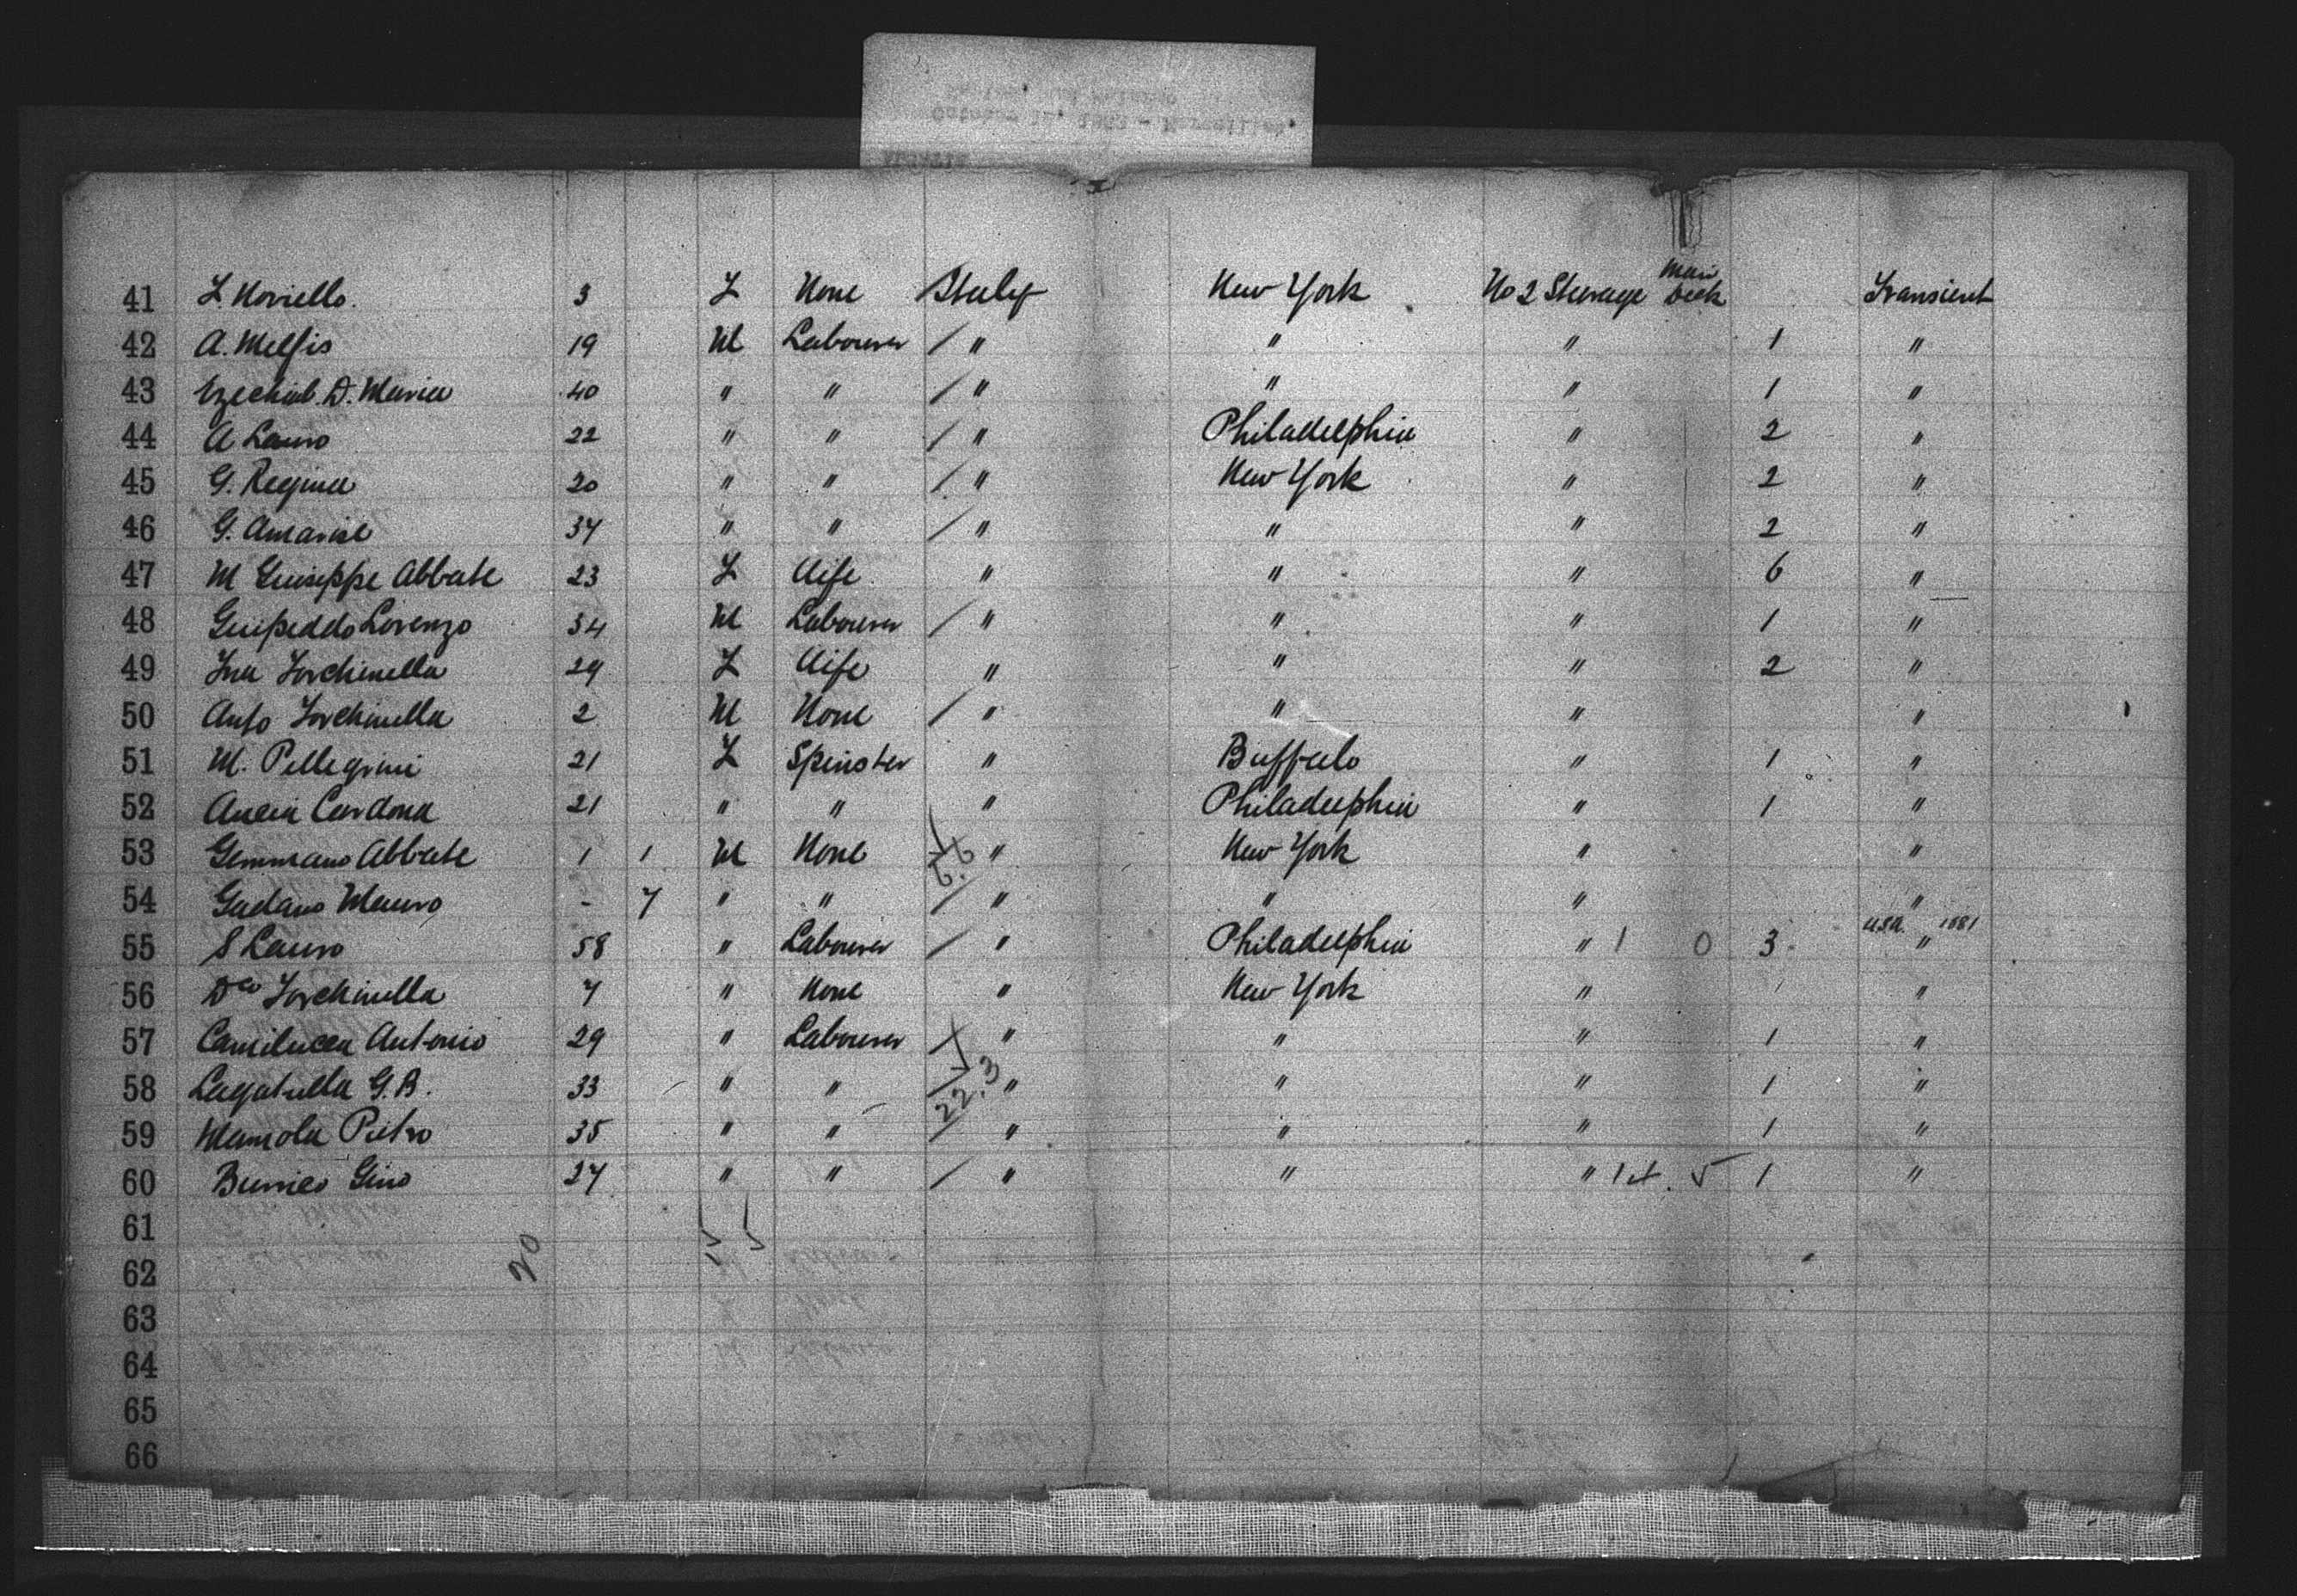 41 F. Noviello. 3 F None Italy New York No 2 Steerage Main Deck Transient
42 A. Melfis 19 M Labourer / " " " 1 "
43 Ezechiel. D. Maria 40 " " / " " " 1 "
44 A Lauro 22 " " / " Philadelphia " 2 "
45 G. Regina 20 " " / " New York " 2 "
46 G. 34 " " / " " " 2 "
47 M Guiseppe Abbate 23 F Wife " " " 6 "
48 Lorenzo 34 M Labourer / " " " 1 "
49 Torchinella 29 F Wife " " " 2 "
50 Torchinella 2 M None / " " " "
51 M. Pellegrini 21 F Spinster " Buffalo " 1 "
52 Cardona 21 " " " Philadelphia " 1 "
53 Gennnaro Abbate 1 1 M None " New York " "
54 Gaetano Mauro - 7 " " / " " " "
55 S Lauro 58 " Labourer / " Philadelphia " 1 0 3 U.S.A. " 1881
56 Torchinella 7 " None " New York " "
57 Camilucca Antonio 29 " Labourer " " " 1 "
58 G. B. 33 " " 22.3 " " " 1 "
59 Mamola Pietro 35 " " / " " " 1 "
60 Gino 27 " " / " " " 1 "
61
20
62
63
64
65
66